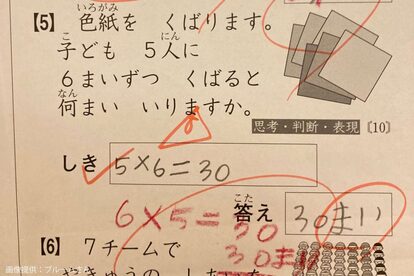 【5】 色紙を くばります。
いろがみ
子ども 5人に
こ にん
6まいずつ くばると
何まい いりますか。
なん
思考・判断・表現 〔10〕
しき 5×6=30
6×5=30
答え 30まい
こた
30まい
【6】 7チームで
画像提供：ブルー